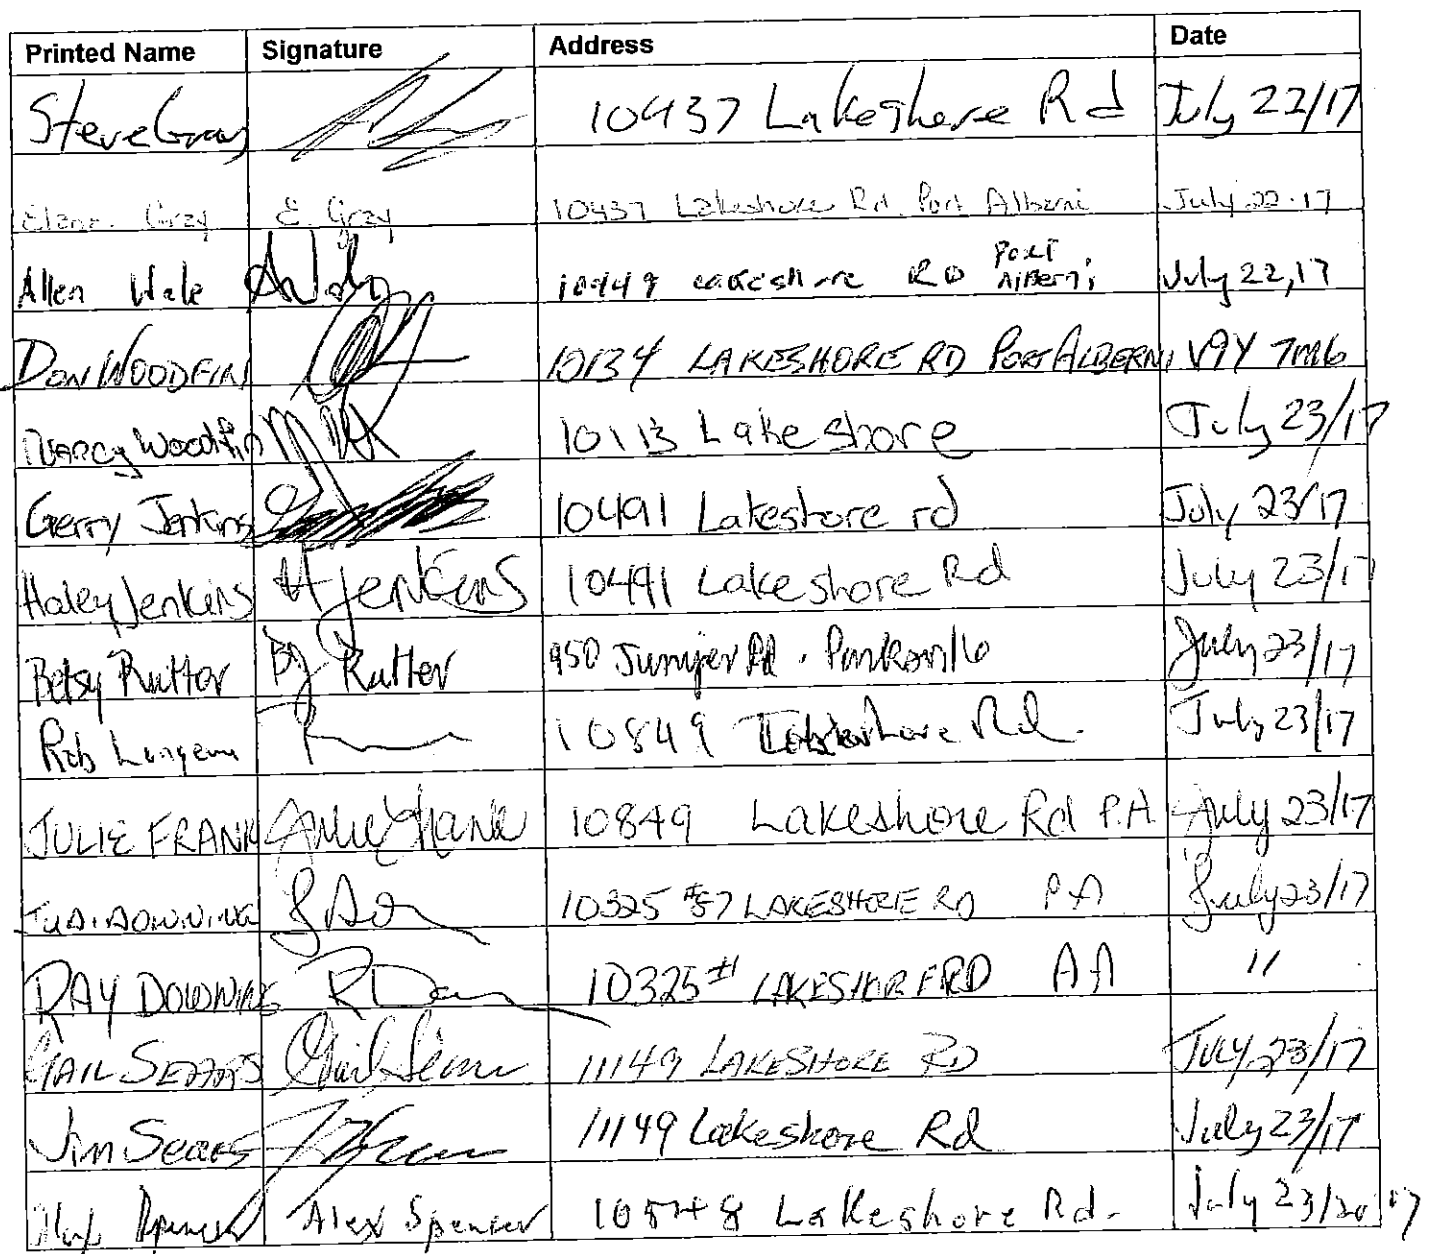 Printed Name Signature Address Date
Steve Gray 10437 Lakeshore Rd July 22/17
Elane Gray E. Gray 10437 Lakeshore Rd. Port Alberni July 22.17
Allen Hale 10449 Lakeshore RD Port Alberni July 22,17
DON WOODFIN 10134 LAKESHORE RD PORT ALBERNI V9Y 7M6
Woodfin 10113 Lakeshore July 23/17
Gerry Jenkins 10491 Lakeshore rd July 23/17
Haley Jenkins H Jenkins 10491 Lakeshore Rd July 23/17
Betsy Rutter BJ Rutter 950 Juniper Rd. Parksville July 23/17
Rob 10849 Lakeshore Rd. July 23/17
JULIE FRANK Julie Frank 10849 Lakeshore Rd P.A July 23/17
DOWNING 10325 LAKESHORE RD P A July 23/17
RAY DOWNING 10325 #1 LAKESHORE RD "
GAIL SEARS Gail Sears 11149 LAKESHORE RD JULY 23/17
Jim Sears 11149 Lakeshore Rd July 23/17
Alex Spencer Alex Spencer Lakeshore Rd. July 23/2017